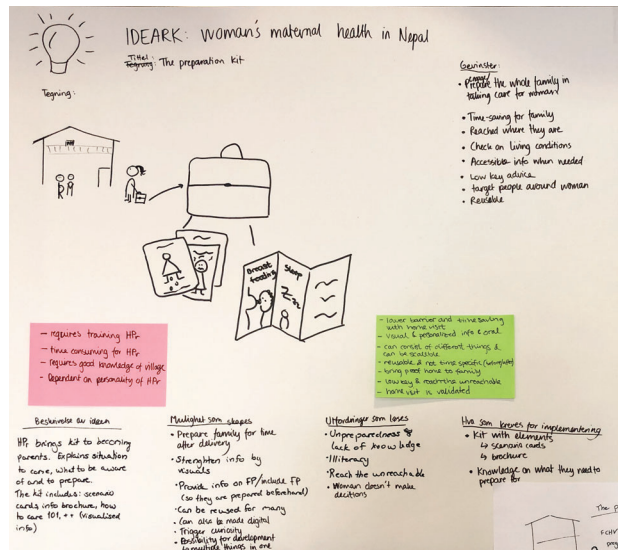 IDEARK: woman's maternal health in Nepal
Tittel:
Tegning: The preparation kit
Tegning:
Breast
feeding
Sleep
Gevinster:
• Prepare the whole family in
taking care for woman
• Time-saving for family
• Reached where they are
• Check on living conditions
• Accessible info when needed
• Low key advice
• target people around woman
• Reusable
- requires training HPr
- time consuming for HPr
- requires good knowledge of village
- Dependent on personality of HPr
- lower barrier and time saving
with home visit
- visual & personalized info & oral
- can consist of different things &
can be scalable
- reusable & not time specific
- bring proof home to family
- low key & reach the unreachable
- home visit is validated
Beskrivelse av ideen
HPr brings kit to becoming
parents. Explains situation
to come, what to be aware
of and to prepare.
The kit includes: scenario
cards, info brochure, how
to care 101, ++ (visualised
info)
Mulighet som skapes
• Prepare family for time
after delivery
• Strenghten info by
visuals
• Provide info on FP/include FP
(so they are prepared beforehand)
• Can be reused for many
• Can also be made digital
• Trigger curiosity
• Possibility for development
→ multiple things in one
Utfordringer som løses
• Unpreparedness &
lack of knowledge
• Illiteracy
• Reach the unreachable
• Woman doesn't make
decisions
Hva som kreves for implementering
• Kit with elements
↳ scenario cards
↳ brochure
• Knowledge on what they need to
prepare for
The p
FCHV